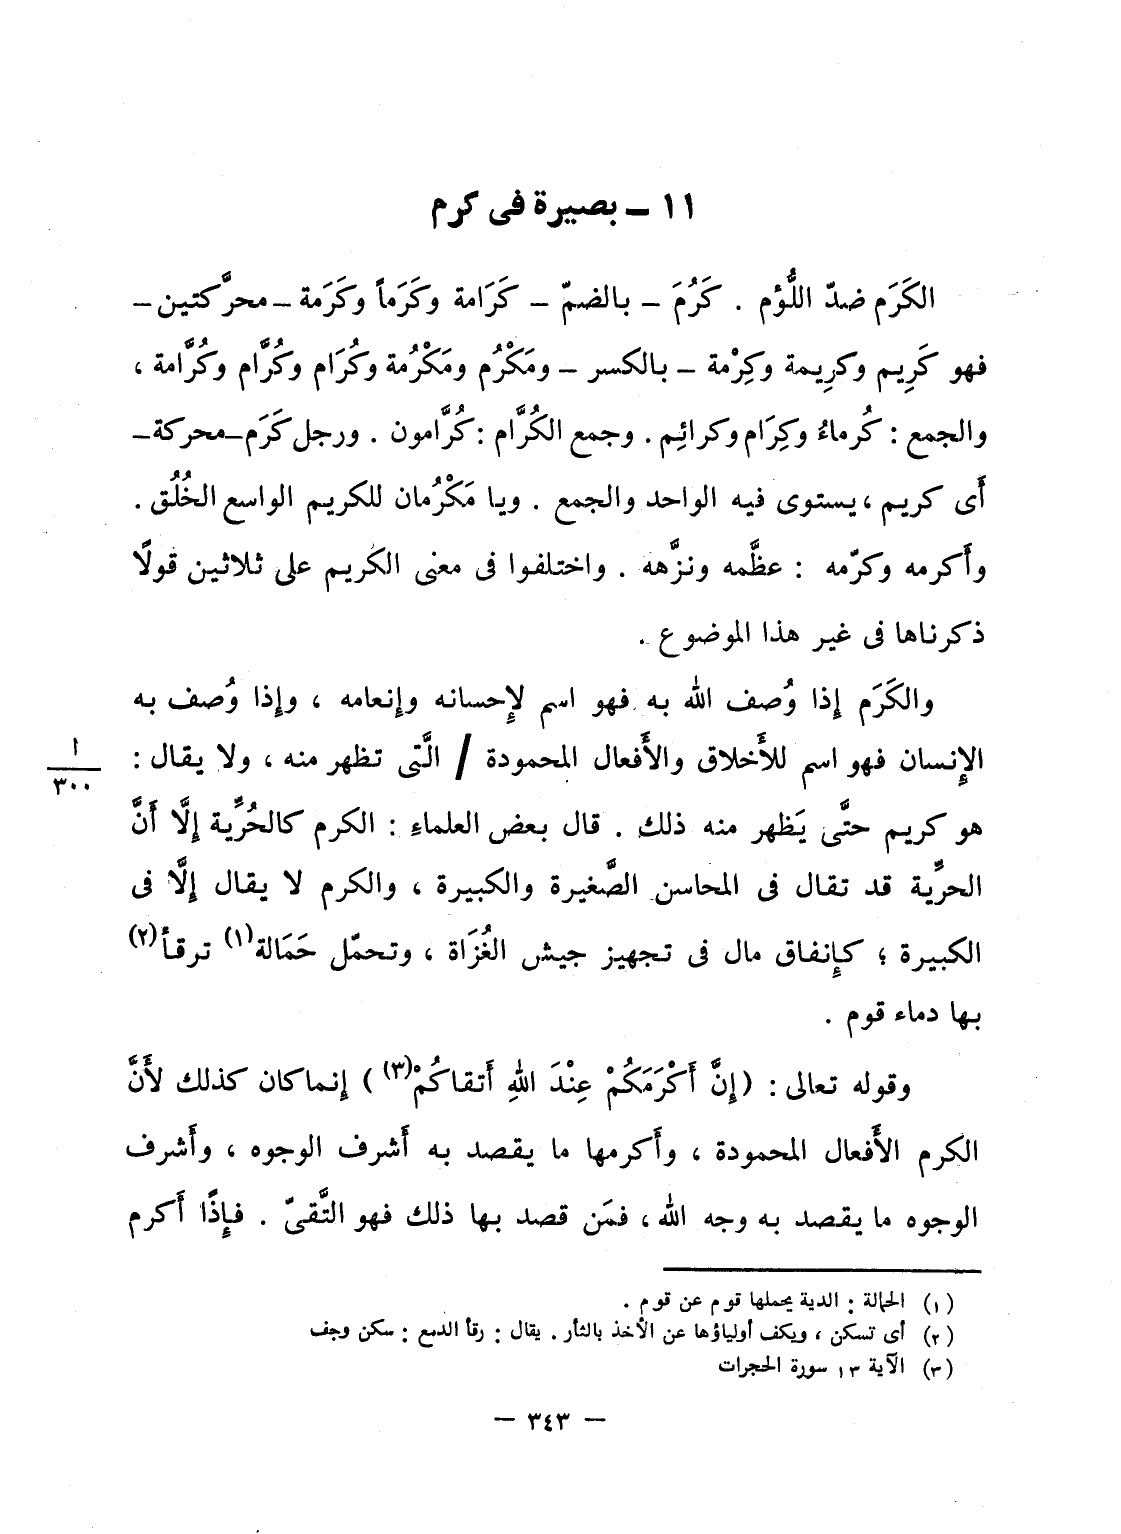 ١١ – بصيرة فى كرم
الكَرَم ضدّ اللُّؤم . كَرُمَ – بالضمّ – كَرَامة وكَرَماً وكَرَمة – محرَّكتين –
فهو كَرِيم وكرِيمة وكِرْمة – بالكسر – ومَكْرُم ومَكْرُمة وكُرَام وكُرَّام وكُرَّامة ،
والجمع : كُرماءُ وكِرَام وكرائِم . وجمع الكُرَّام : كُرَّامون . ورجل كَرَم – محركة –
أَى كريم ، يستوى فيه الواحد والجمع . ويا مَكْرُمان للكريم الواسع الخُلُق .
وأَكرمه وكرّمه : عظَّمه ونزَّهه . واختلفوا فى معنى الكريم على ثلاثين قولًا
ذكرناها فى غير هذا الموضوع .
والكَرَم إِذا وُصف الله به فهو اسم لإِحسانه وإِنعامه ، وإِذا وُصف به
الإِنسان فهو اسم للأَخلاق والأَفعال المحمودة / الَّتى تظهر منه ، ولا يقال :
ا
٣٠٠
هو كريم حتَّى يَظهر منه ذلك . قال بعض العلماءِ : الكرم كالحُرِّية إِلَّا أَنَّ
الحرِّية قد تقال فى المحاسن الصَّغيرة والكبيرة ، والكرم لا يقال إِلَّا فى
الكبيرة ؛ كإِنفاق مال فى تجهيز جيش الغُزَاة ، وتحمّل حَمَالة(١) ترقأ(٢)
بها دماء قوم .
وقوله تعالى : (إِنَّ أَكْرَمَكُمْ عِنْدَ اللهِ أَتقاكُمْ(٣) ) إِنما كان كذلك لأَنَّ
الكرم الأَفعال المحمودة ، وأَكرمها ما يقصد به أَشرف الوجوه ، وأَشرف
الوجوه ما يقصد به وجه الله ، فمَن قصد بها ذلك فهو التَّقىّ . فإِذًا أَكرم
(١) الحمالة : الدية يحملها قوم عن قوم .
(٢) أى تسكن ، ويكف أولياؤها عن الأخذ بالثأر . يقال : رقأ الدمع : سكن وجف
(٣) الآية ١٣ سورة الحجرات
– ٣٤٣ –